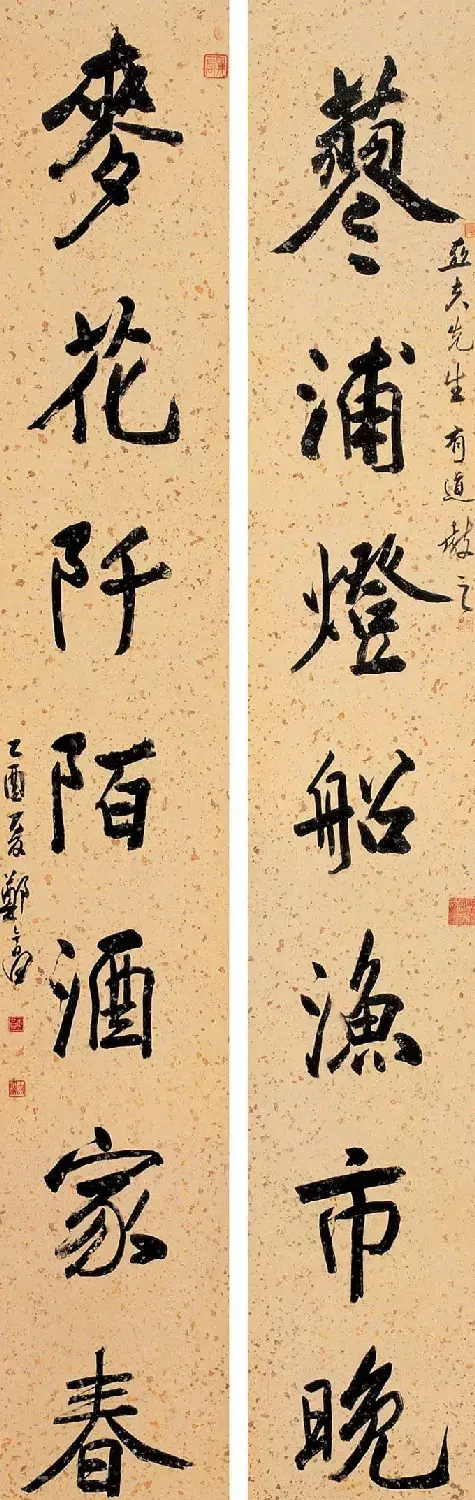 亞夫先生有道教之
蓼浦燈船漁市晚
麥花阡陌酒家春
乙酉夏鄭